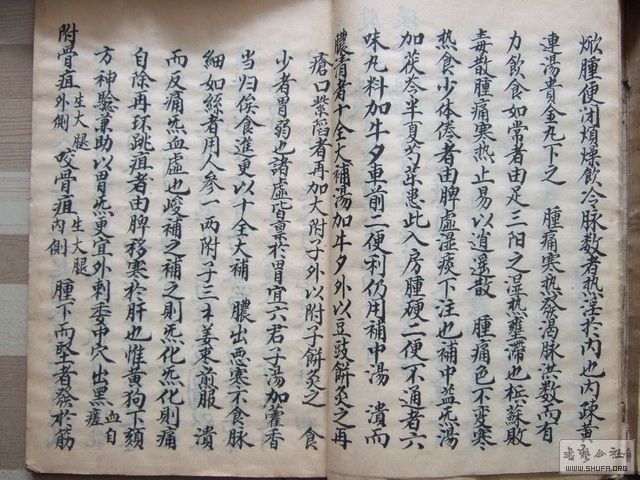 焮腫便闭煩燥飲冷脉数者热淫於内也内疎黄
連湯貴金丸下之　腫痛寒热發渴脉洪数而有
力飲食如常者由足三阳之湿热壅滞也槟蘇敗
毒散腫痛寒热止易以逍遥散　腫痛色不变寒
热食少体倦者由脾虚湿痰下注也補中益炁湯
加茯苓半夏芍薬患此入房腫硬二便不通者六
味丸料加牛夕車前二便利仍用補中湯　潰而
膿清者十全大補湯加牛夕外以豆豉餅灸之再
瘡口紫陷者再加大附子外以附子餅灸之　食
少者胃弱也諸虚皆禀於胃宜六君子湯加藿香
当归俟食進更以十全大補　膿出恶寒不食脉
細如絲者用人参一两附子三不姜枣煎服　潰
而反痛炁血虚也峻補之補之則炁化炁化則痛
自除再环跳疽者由脾移寒於肝也惟黄狗下頦
方神騐兼助以胃炁更宜外刺委中穴出黑血自瘥
附骨疽生大腿外側咬骨疽生大腿内側腫下而堅者發於筋
書藝公社
WWW.SHUFA.ORG